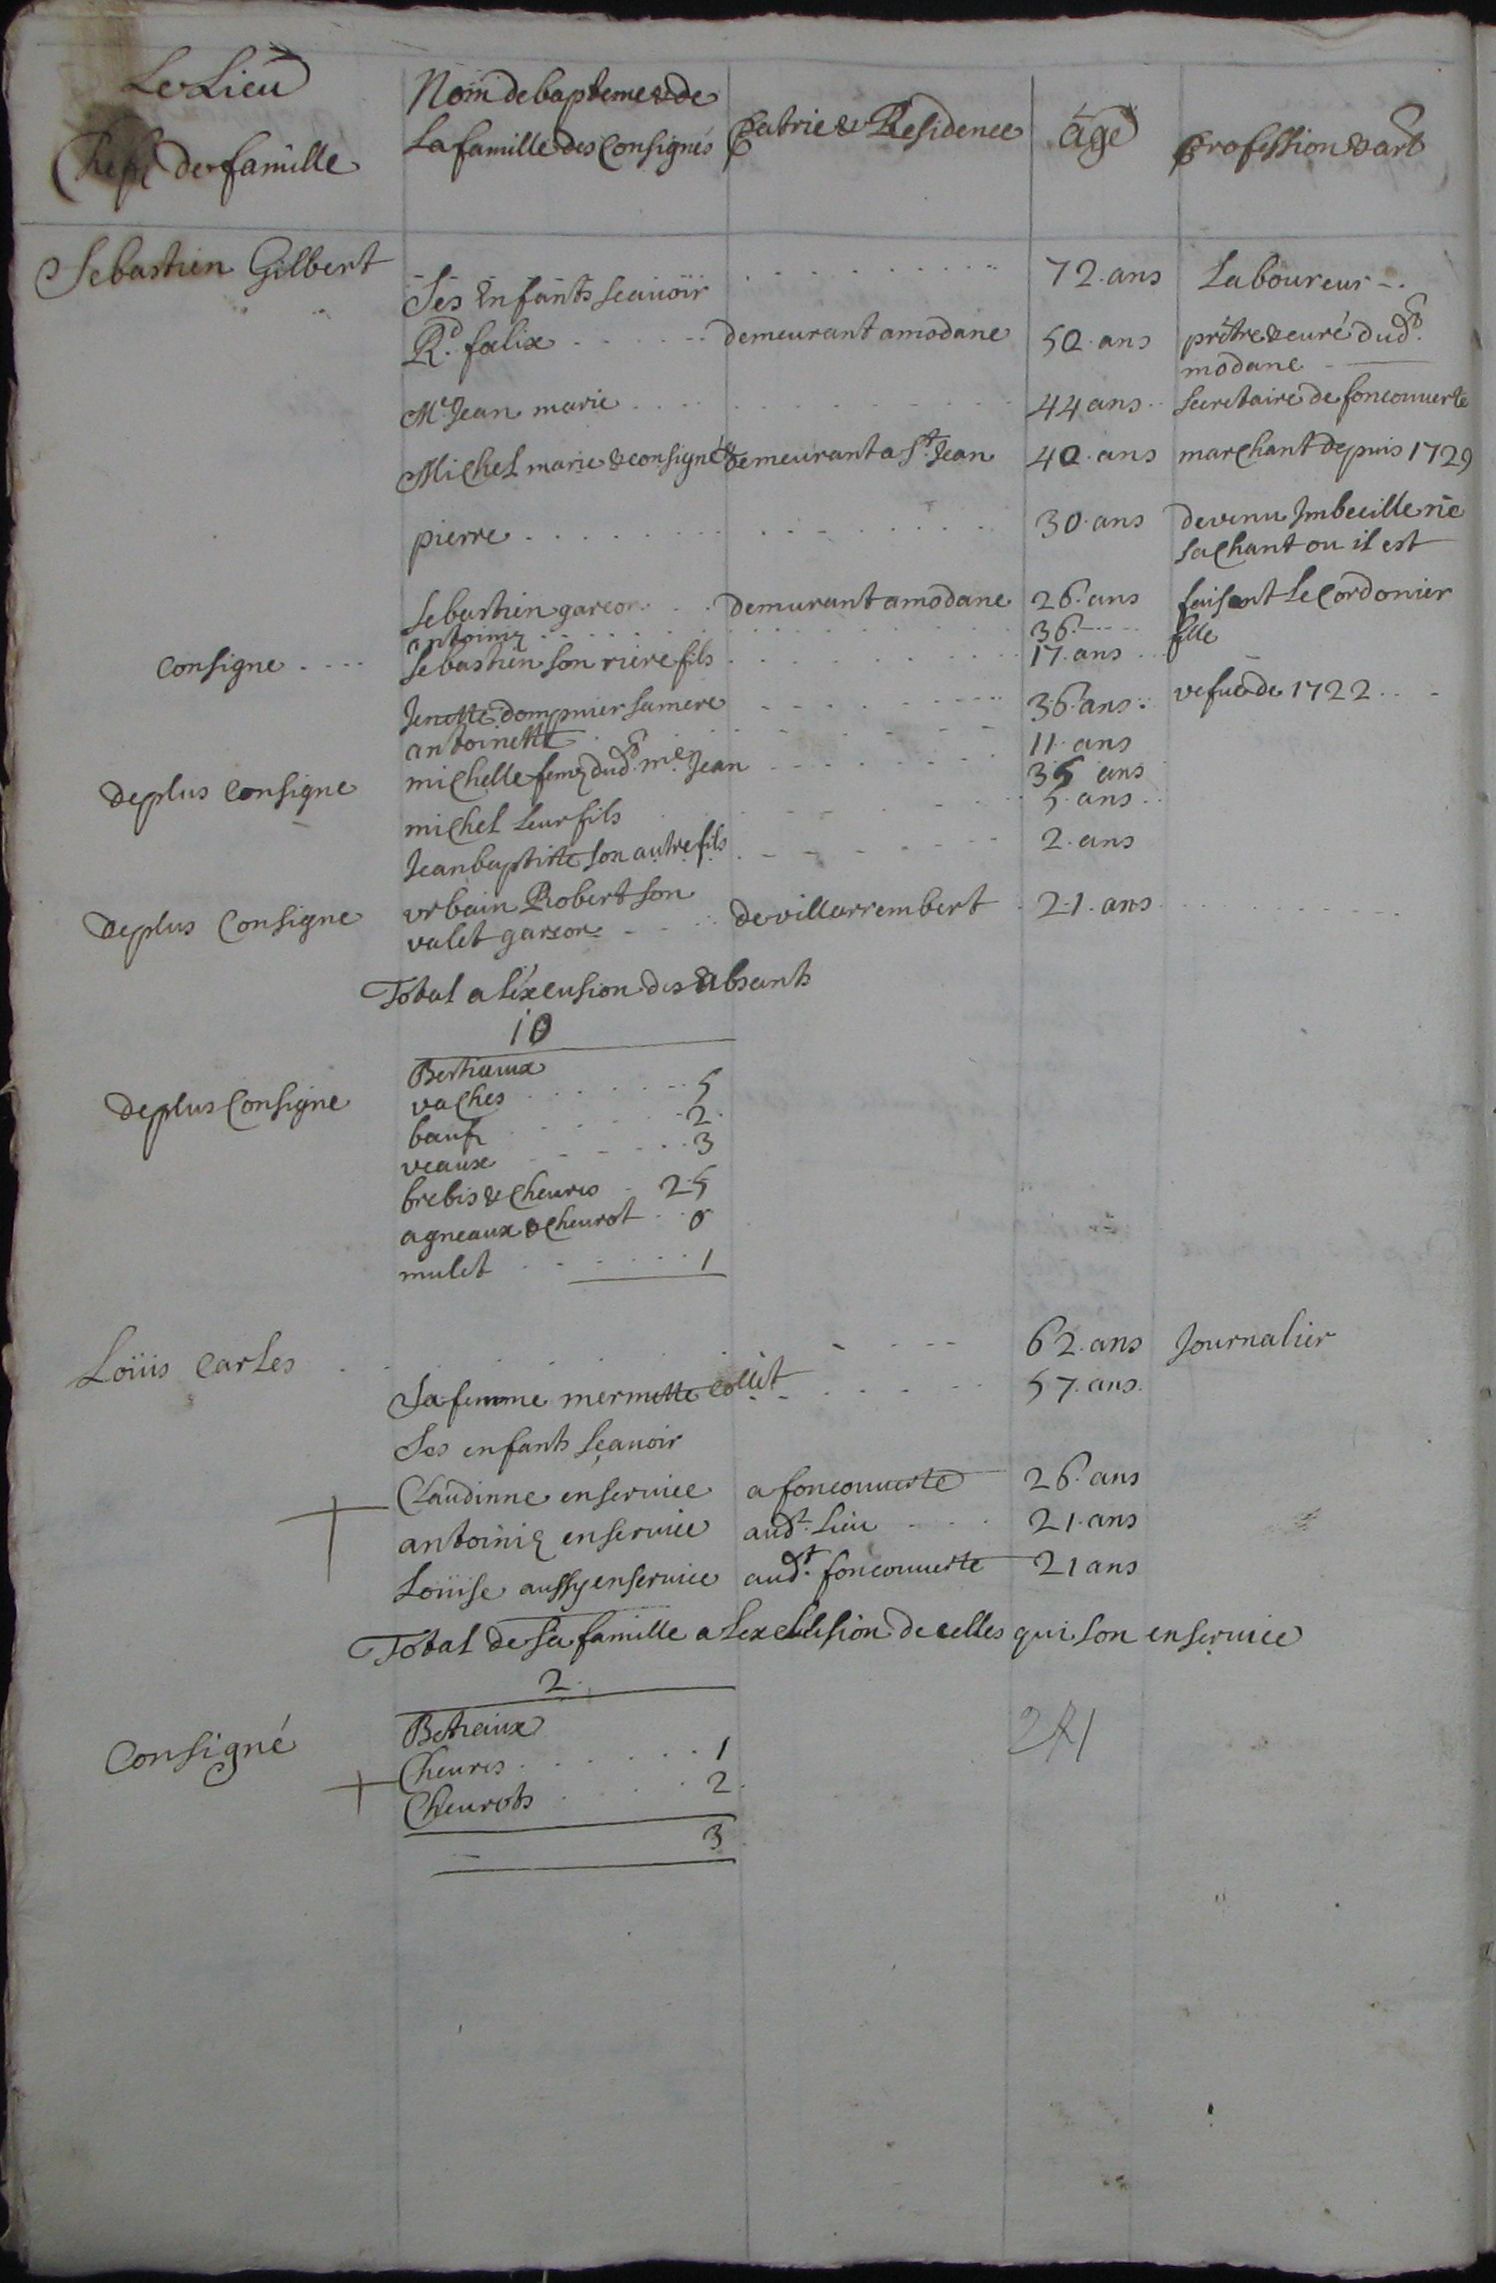 Le Lieu
Chefs de famille
Nom de bapteme & de
La famille des Consignés
Patrie & Residence
age
profession & art
Sebastien Gilbert . . . . . 72. ans Laboureur
Ses Enfants Scauoir
Rd. faelix . . . . demeurant a modane 50. ans prêtre & curé dudt.
modane
Me Jean marie . . . . 44 ans . . Secretaire de fonconuerte
Michel marie & consigné demeurant a St. Jean 40. ans marchant depuis 1729
pierre . . . . . . 30. ans devenu Imbecille ne
sachant ou il est
Sebastien garcon . . demurant a modane 26. ans faisant Le Cordonier
antoine . . . . . 36. . . . fille
Consigne . . . . Sebastien son riere fils . . . . 17. ans
Jenette dompnier sa mere . . . . 36. ans . . vefue de 1722 . .
antoinette . . . . 11. ans
De plus Consigne michelle feme dudt. me. Jean . . . . 35 ans
michel Leur fils . . . . 5. ans . .
Jean baptiste son autre fils . . . . 2. ans
De plus Consigne vrbain Robert son
valet garcon . . . de villarrembert . 21. ans
Total a léxclusion des absants
10
Bestiaux
De plus Consigne vaches . . . . 5
bœufs . . . . 2.
veaux . . . . 3
brebis & cheures . 25
agneaux & cheurot . . 0
mulet . . . . 1
Loüis Carles . . . . . 62. ans Journalier
Sa femme mermette Collet . . . . 57. ans.
Ses enfants sçauoir
Claudinne en seruice a fonconuerte 26. ans
antoinie en seruice audt. Lieu . . . . 21. ans
Loüise aussy en seruice audt. fonconuerte 21 ans
Total de sa famille a Lexclusion de celles qui son en seruice
2.
Betiaux
Consigné Cheures . . . . 1
Cheurots . . . . 2.
3